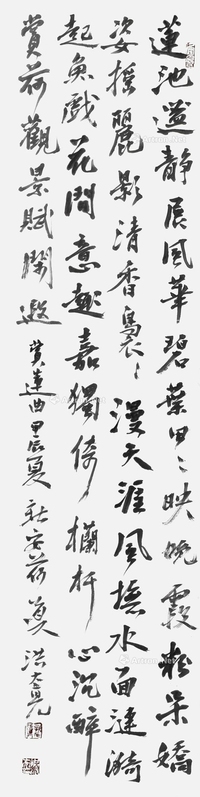 蓮池邃靜展風華碧葉田〻映晚霞粉朵嬌
姿搖麗影清香裊〻漫天涯風撫水面漣漪
起魚戲花間意趣嘉獨倚欄杆心沉醉
賞荷觀景賦閒遐 賞蓮曲甲辰夏新安荷
洪